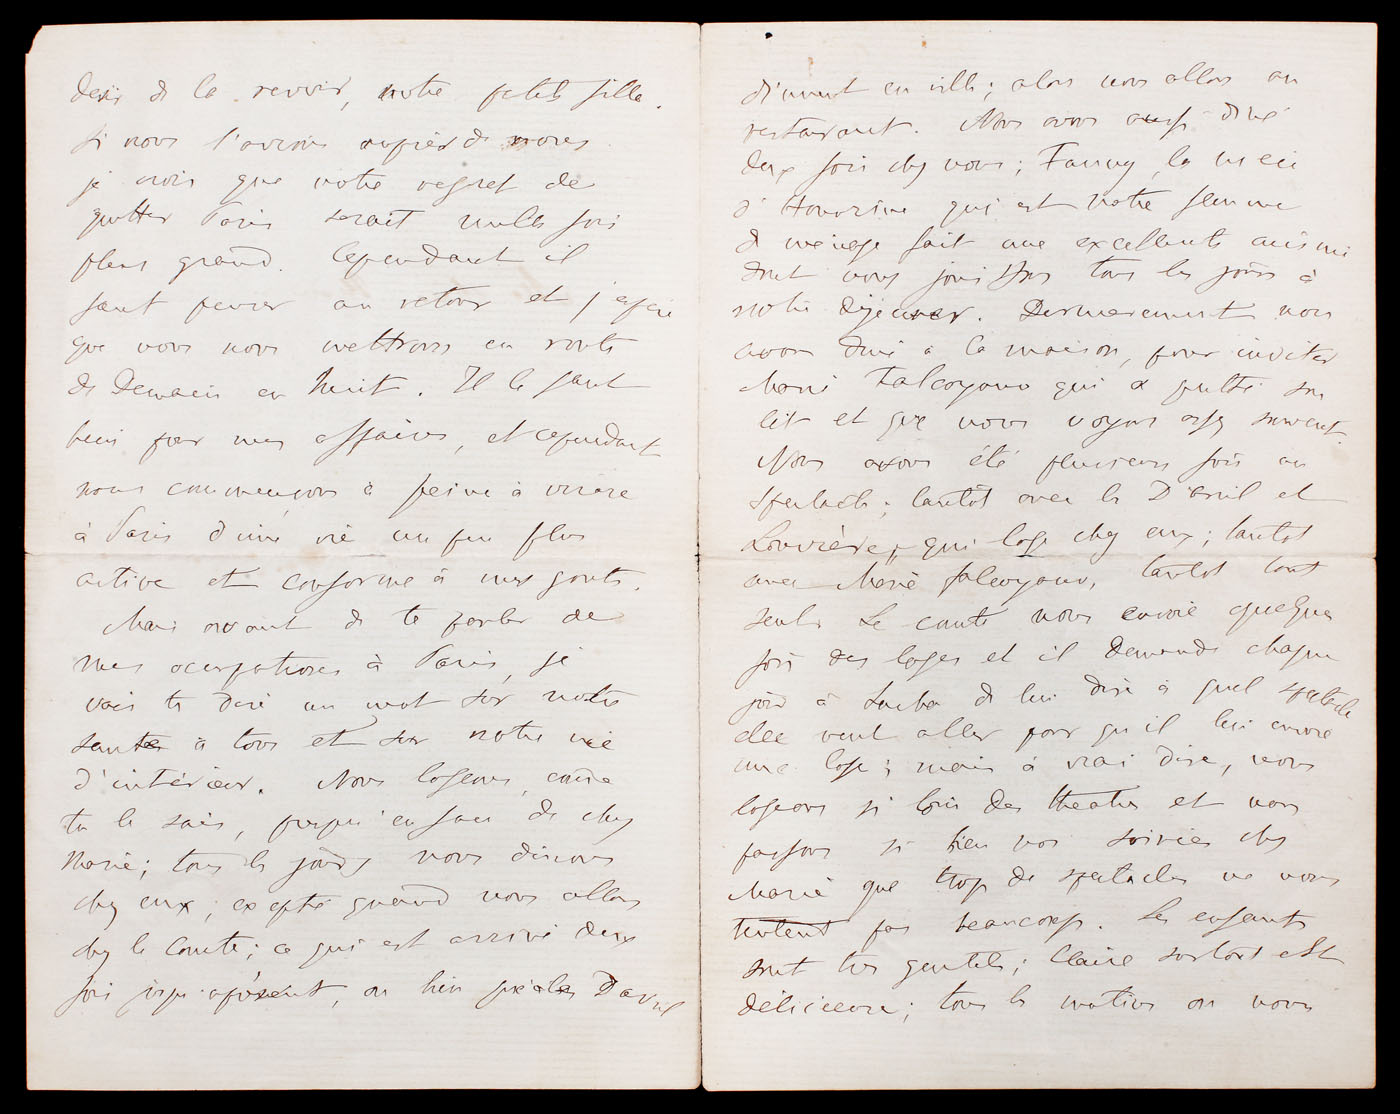 désir de la revoir, notre petite fille.
Si nous l'avions auprès de nous
je crois que notre regret de
quitter Paris serait mille fois
plus grand. Cependant il
faut penser au retour et j'espère
que nous nous mettrons en route
de Demain en huit. Il le faut
bien pour mes affaires, et cependant
nous commençons à peine à vivre
à Paris d'une vie un peu plus
active et conforme à mes gouts.
Mais avant de te parler de
mes occupations à Paris, je
vais te dire un mot sur notre
santé à tous et sur notre vie
d'intérieur. Nous logeons, comme
tu le sais, presqu'en face de chez
Marie; tous les jours nous dinons
chez eux, excepté quand nous allons
chez le Comte; ce qui est arrivé deux
fois jusqu'à présent, ou bien que les D'Avril
dinent en ville; alors nous allons au
restaurant. Nous avons aussi diné
deux fois chez nous; Fanny, la nièce
d'Honorine qui est notre femme
de ménage fait une excellente cuisine
dont nous jouissons tous les jours à
notre déjeuner. Dernièrement nous
avons diné à la maison, pour inviter
Marie Falcoyano qui a quitté son
lit et que nous voyons assez souvent.
Nous avons été plusieurs fois au
spectacle; tantôt avec les D'Avril et
Louvière, qui loge chez eux; tantot
avec Marie Falcoyano, tantot tout
seuls. Le comte nous envoie quelques
fois des loges et il demande chaque
jour à de lui dire à quel spectacle
elle veut aller pour qu'il lui envoie
une loge; mais à vrai dire, nous
logeons si loin des theatres et nous
passons si bien nos soirées chez
Marie que trop de spectacles ne nous
tentent pas beaucoup. Les enfants
sont très gentils; Claire surtout est
délicieuse; tous les matins on nous